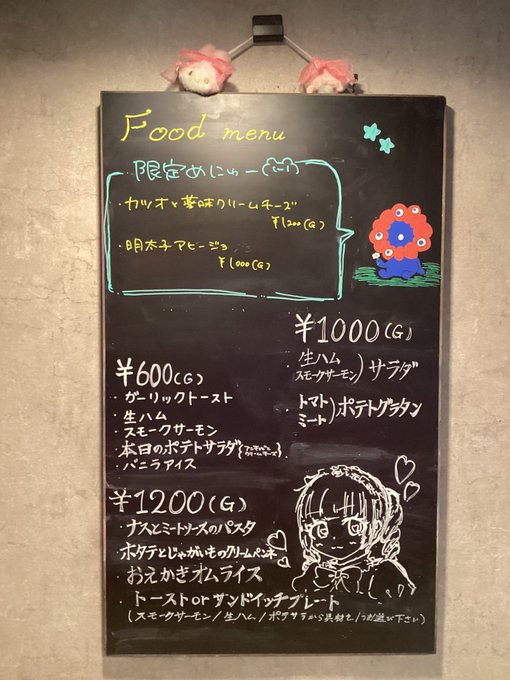 Food menu
限定めにゅー
・カツオと薬味クリームチーズ
¥1200(G)
・明太子アヒージョ
¥1000(G)
¥1000(G)
・生ハム
スモークサーモン)サラダ
・トマト
ミート)ポテトグラタン
¥600(G)
・ガーリックトースト
・生ハム
スモークサーモン
・本日のポテトサラダ
・バニラアイス
¥1200(G)
・ナスとミートソースのパスタ
ホタテとじゃがいものクリームペンネ
・おえかきオムライス
・トーストorサンドイッチプレート
(スモークサーモン/生ハム/ポテサラから具材を1つお選び下さい)